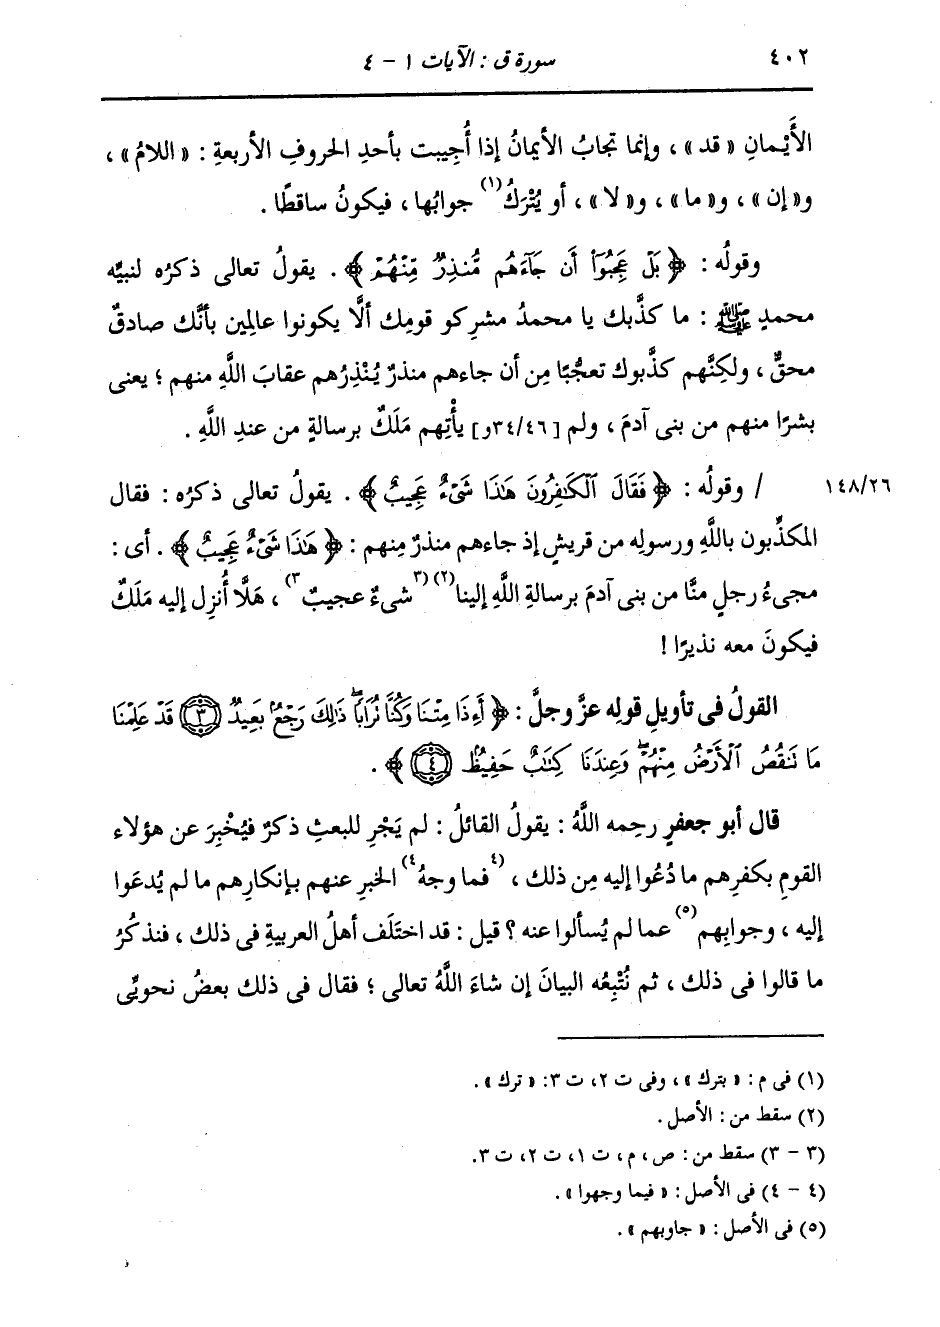 ٤٠٢ سورة ق : الآيات ١ - ٤
الأَيْمانِ « قد » ، وإنما تجابُ الأيمانُ إذا أُجِيبت بأحدِ الحروفِ الأربعةِ : « اللامُ » ،
و« إن » ، و« ما » ، و« لا » ، أو يُتْرَكُ(١) جوابُها ، فيكونُ ساقطًا .
وقولُه : ﴿ بَلْ عَجِبُوٓا۟ أَن جَآءَهُم مُّنذِرٌ مِّنْهُمْ ﴾ . يقولُ تعالى ذكرُه لنبيِّه
محمدٍ ﷺ : ما كذَّبك يا محمدُ مشركو قومِك ألَّا يكونوا عالِمين بأنَّك صادقٌ
محقٌّ ، ولكِنَّهم كذَّبوك تعجُّبًا مِن أن جاءهم منذرٌ يُنْذِرُهم عقابَ اللَّهِ منهم ؛ يعنى
بشرًا منهم من بنى آدمَ ، ولم [٣٤/٤٦و] يأْتِهم مَلَكٌ برسالةٍ من عندِ اللَّهِ .
١٤٨/٢٦ / وقولُه : ﴿ فَقَالَ ٱلْكَٰفِرُونَ هَٰذَا شَىْءٌ عَجِيبٌ ﴾ . يقولُ تعالى ذكرُه : فقال
المكذِّبون باللَّهِ ورسولِه من قريشٍ إذ جاءهم منذرٌ مِنهم : ﴿ هَٰذَا شَىْءٌ عَجِيبٌ ﴾ . أى :
مجىءُ رجلٍ منَّا من بنى آدمَ برسالةِ اللَّهِ إلينا(٢) (٣شىءٌ عجيبٌ٣) ، هَلَّا أُنزِل إليه مَلَكٌ
فيكونَ معه نذيرًا !
القولُ فى تأويلِ قولِه عزَّ وجلَّ : ﴿ أَءِذَا مِتْنَا وَكُنَّا تُرَابًا ۖ ذَٰلِكَ رَجْعٌۢ بَعِيدٌ ٣ قَدْ عَلِمْنَا
مَا تَنقُصُ ٱلْأَرْضُ مِنْهُمْ ۖ وَعِندَنَا كِتَٰبٌ حَفِيظٌۢ ٤ ﴾ .
قال أبو جعفرٍ رحِمه اللَّهُ : يقولُ القائلُ : لم يَجْرِ للبعثِ ذكرٌ فيُخْبِرَ عن هؤلاء
القومِ بكفرِهم ما دُعُوا إليه مِن ذلك ، (٤فما وجهُ٤) الخبرِ عنهم بإنكارِهم ما لم يُدعَوا
إليه ، وجوابِهم(٥) عما لم يُسألوا عنه ؟ قيل : قد اختَلَف أهلُ العربيةِ فى ذلك ، فنذكُرُ
ما قالوا فى ذلك ، ثم نُتْبِعُه البيانَ إن شاءَ اللَّهُ تعالى ؛ فقال فى ذلك بعضُ نحويِّى
(١) فى م : « بترك » ، وفى ت ٢، ت ٣: « ترك » .
(٢) سقط من : الأصل .
(٣ - ٣) سقط من : ص ، م ، ت ١، ت ٢، ت ٣.
(٤ - ٤) فى الأصل : « فيما وجهوا » .
(٥) فى الأصل : « جاوبهم » .